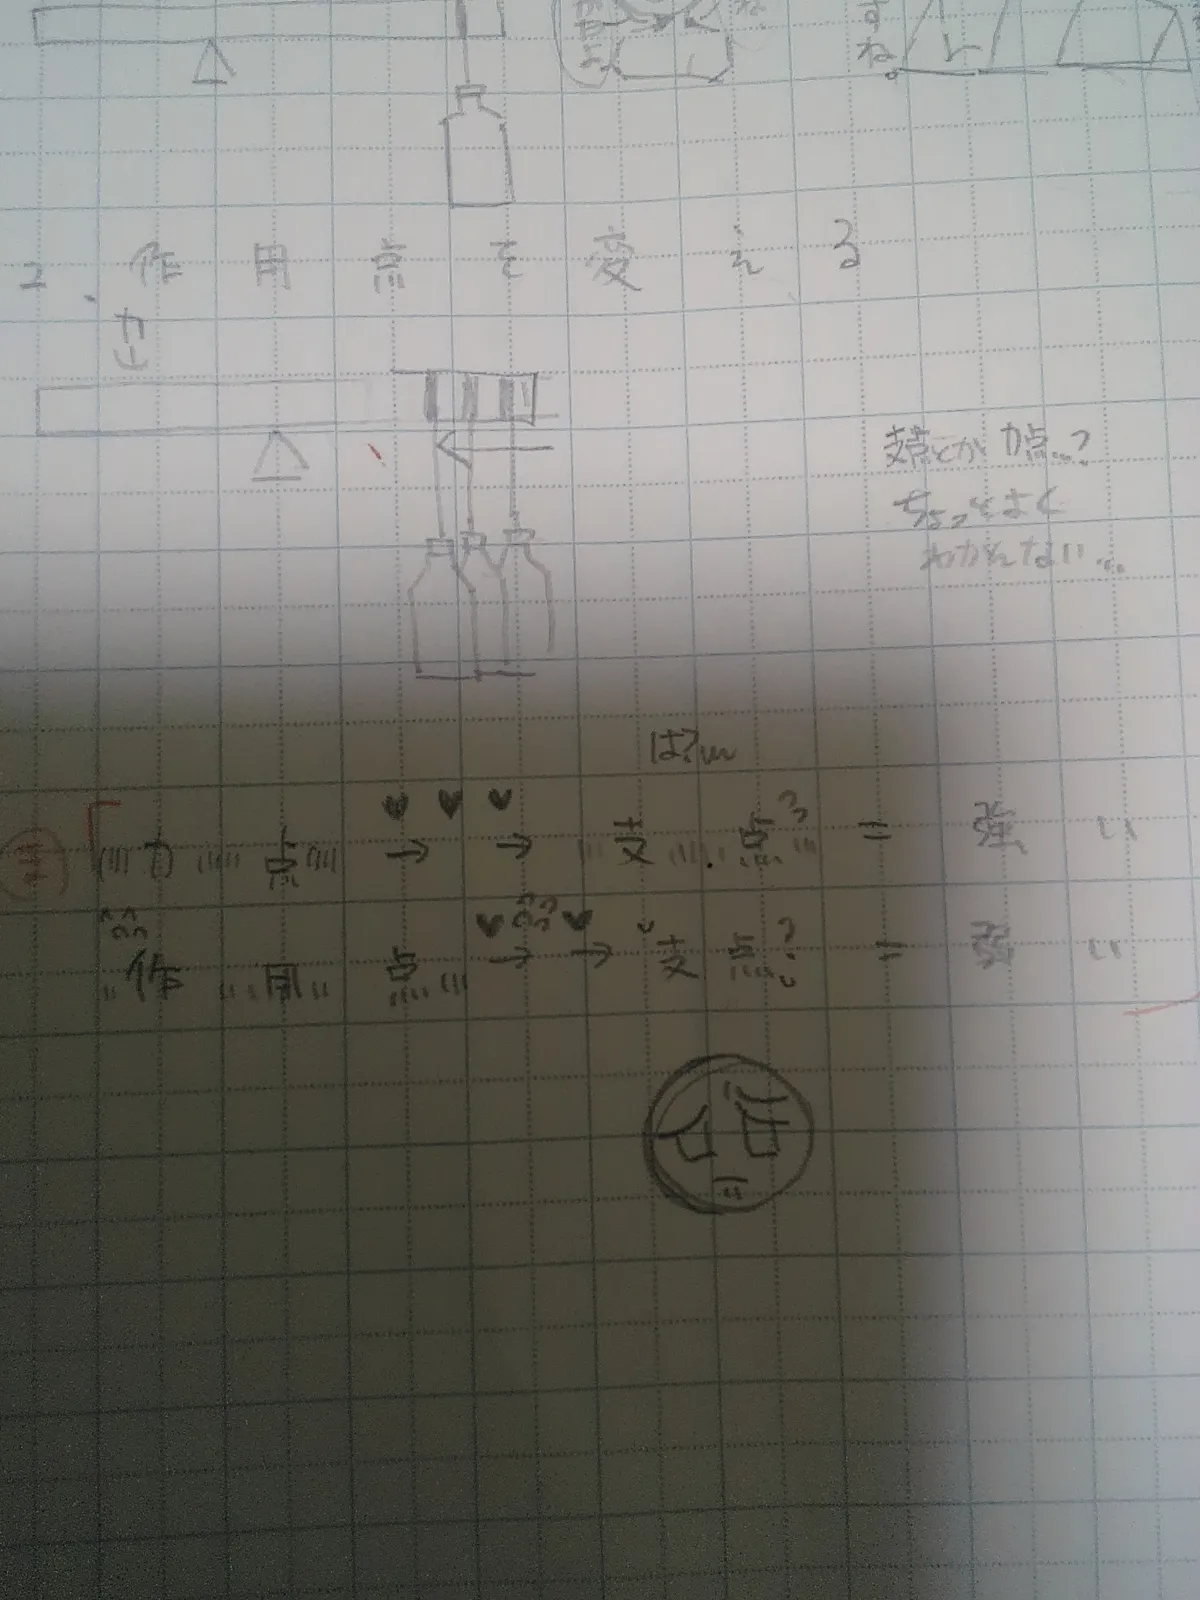 すね。
2、作用点を変える
力
支点とか力点…?
ちょっとよく
わかんない…
は?
力点→→支点?=強い
作用点→→支点?=強い